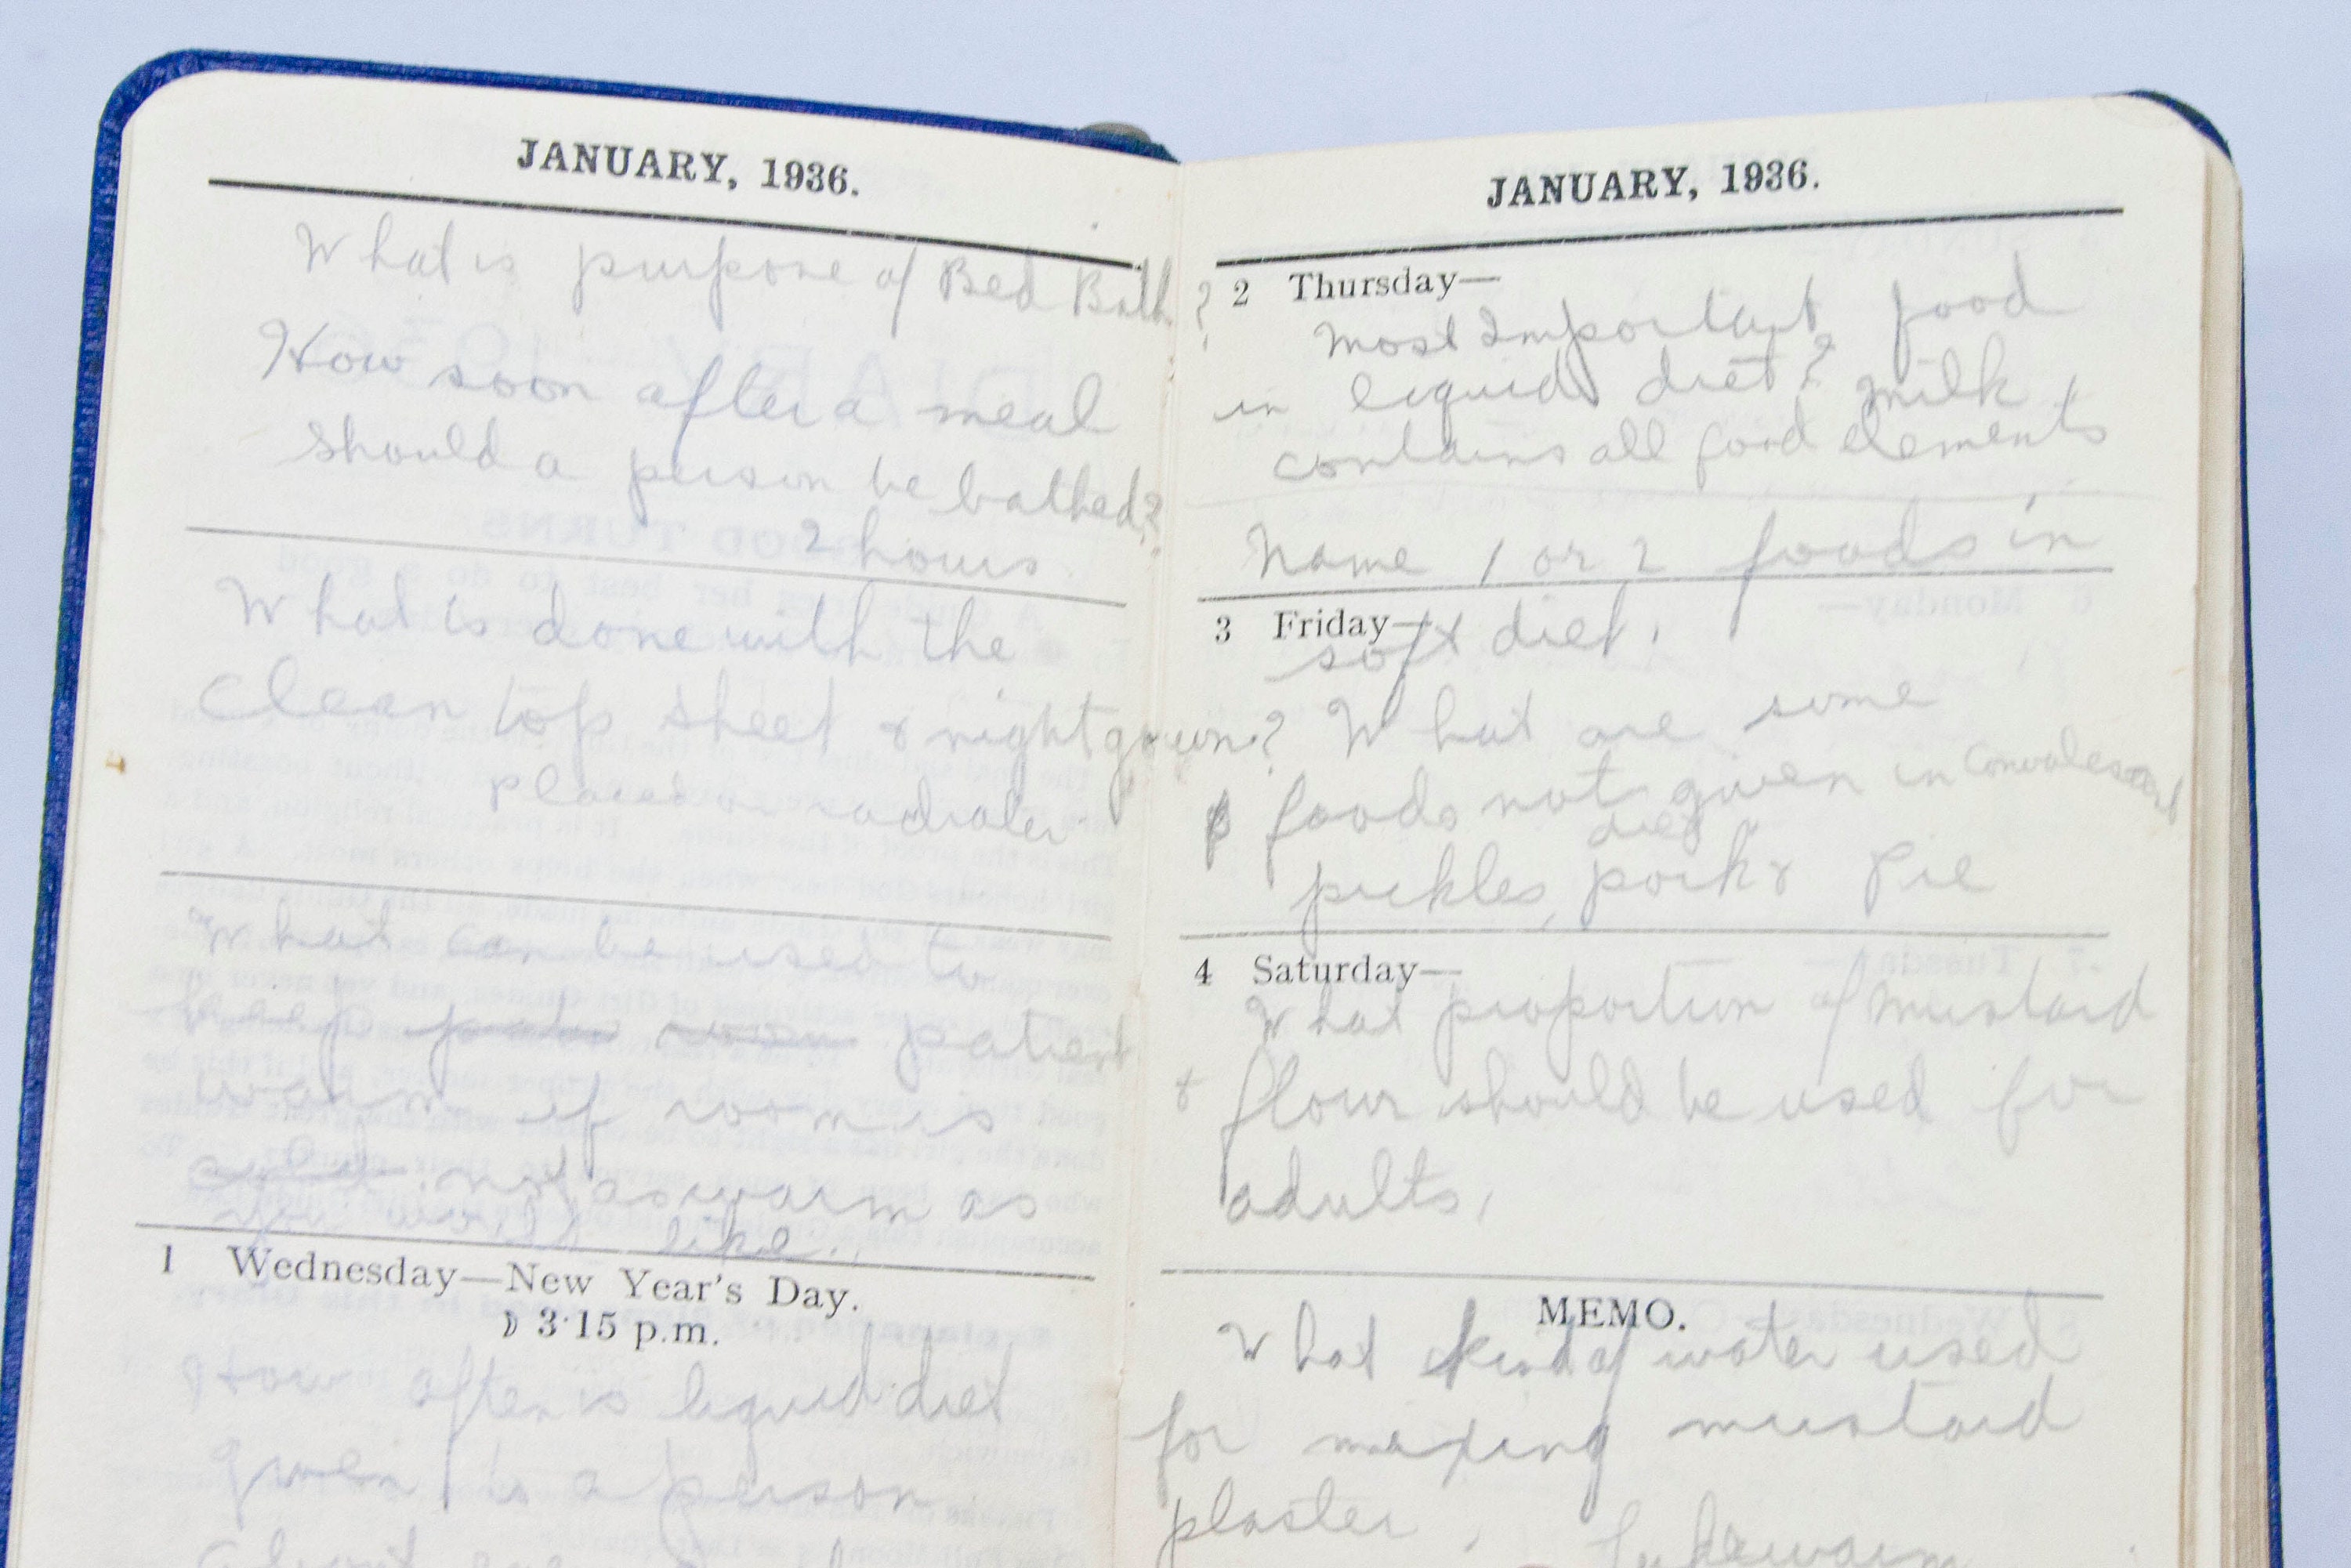 JANUARY, 1936.
What is purpose of Bed Bath?
How soon after a meal
should a person be bathed?
2 hours
What is done with the
clean top sheet & nightgown?
placed on radiator
What can be used to
keep room patient
warm if room is
cold not as warm as
you would like.
1 Wednesday—New Year's Day.
☽ 3·15 p.m.
How often is liquid diet
given to a person
JANUARY, 1936.
2 Thursday—
Most Important food
in liquid diet? Milk
contains all food elements
Name 1 or 2 foods in
3 Friday—
soft diet.
What are some
foods not given in Convalescent
diet
pickles, pork & Pie
4 Saturday—
What proportion of Mustard
& flour should be used for
adults.
MEMO.
What kind of water used
for mixing mustard
plaster. Lukewarm